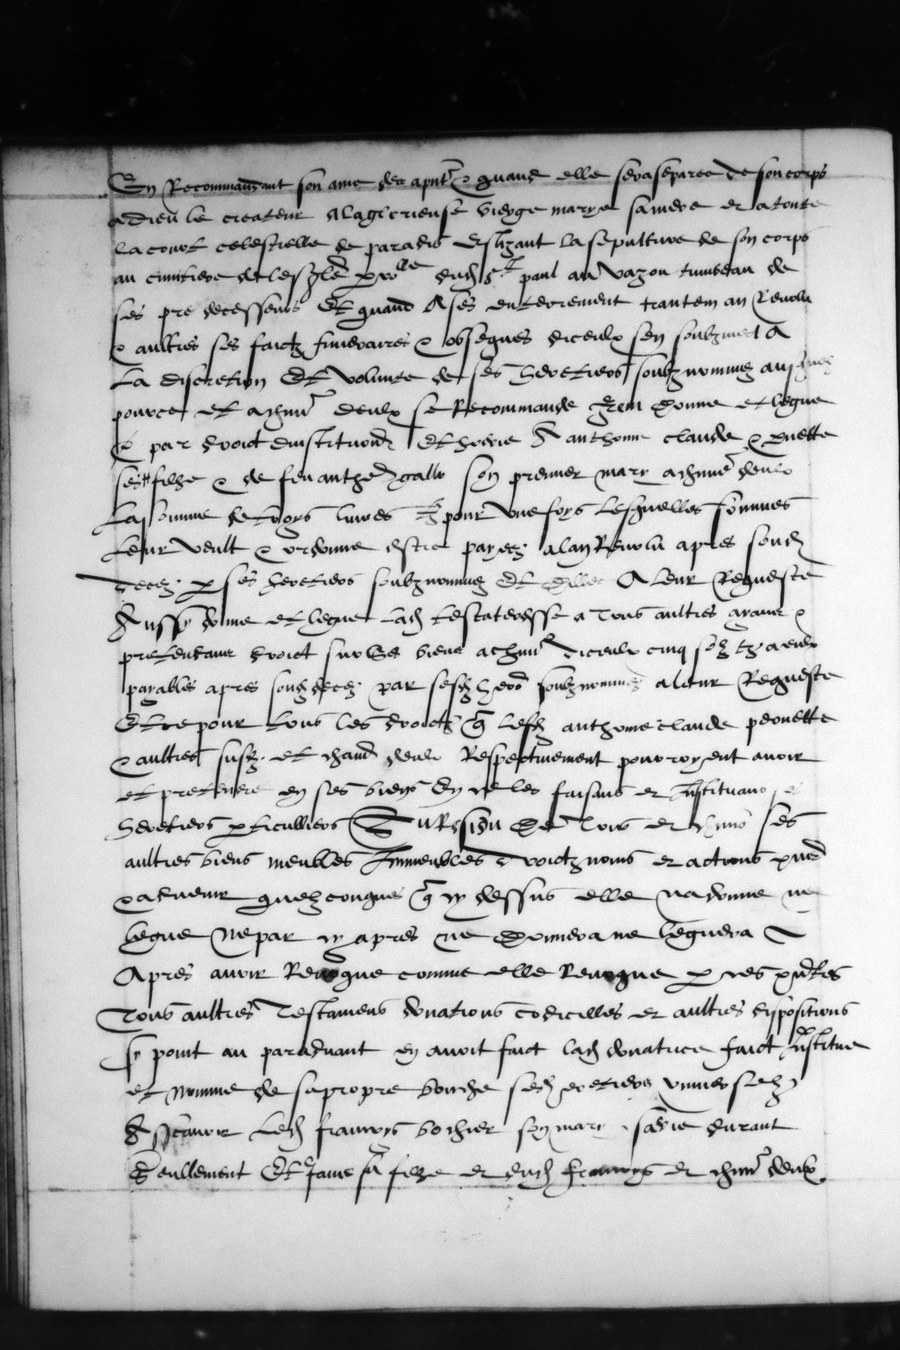 En Recommandant son ame des apnt & quand elle sera separee de son corps
a dieu le createur a la glorieuse vierge marye sa mere et a toute
la court celestielle de paradis eslizant la sepulture de son corps
au cimitiere de lesgle dud st paul au tumbeau de
ses predecesseurs Et quand A ses enterrement trantem an Revolu
& aultres ses faictz funeraires & obseques diceulx sen soubzmect A
la discretion Et volunte de ses heretiers soubznommez ausquelz
pource et a chun deulx se Recommande Item donne et legue
& par droict dinstitution Et hoirie A anthome claude &
ses filhe & de feu anthe son premier mary a chune deulx
La somme de troys livres tz pour une foys Lesquelles sommes
leur veult & ordonne estre payees a lan Revolu apres soud
deces p ses heretiers soubznommez Et A leur Requeste
Aussy donne et legue Lad testateresse a Tous aultres ayans &
pretendans droict sur ses biens a chun diceulx cinq solz tz
payables apres soud deces par sesd hers soubznommez a leur Requeste
Et ce pour tous les droictz q lesd anthome claude
& aultres susd et chund deulx Respectivement pourroyent avoir
et pretendre en ses biens En ce les faisans et Instituans ses
heretiers pticulliers Au Residu De Tous et chuns ses
aultres biens meubles Immeubles droictz noms et actions pnt
& advenir quelzconques q cy dessus elle na donne ne
legue Ne par cy apres ne donnera ne leguera A
Apres avoir Revoque comme elle Revoque p ces pntes
Tous aultres Testamens donations codicilles et aultres dispositions
sy point au paradvant en avoit faict lad donatrice faict Institue
et Nomme de sa propre bouche sesd heretiers universelz
Ascavoir Led francoys bochier son mary sa vie durant
Seullement Et Jane sa filhe et dud francoys et chun deulx